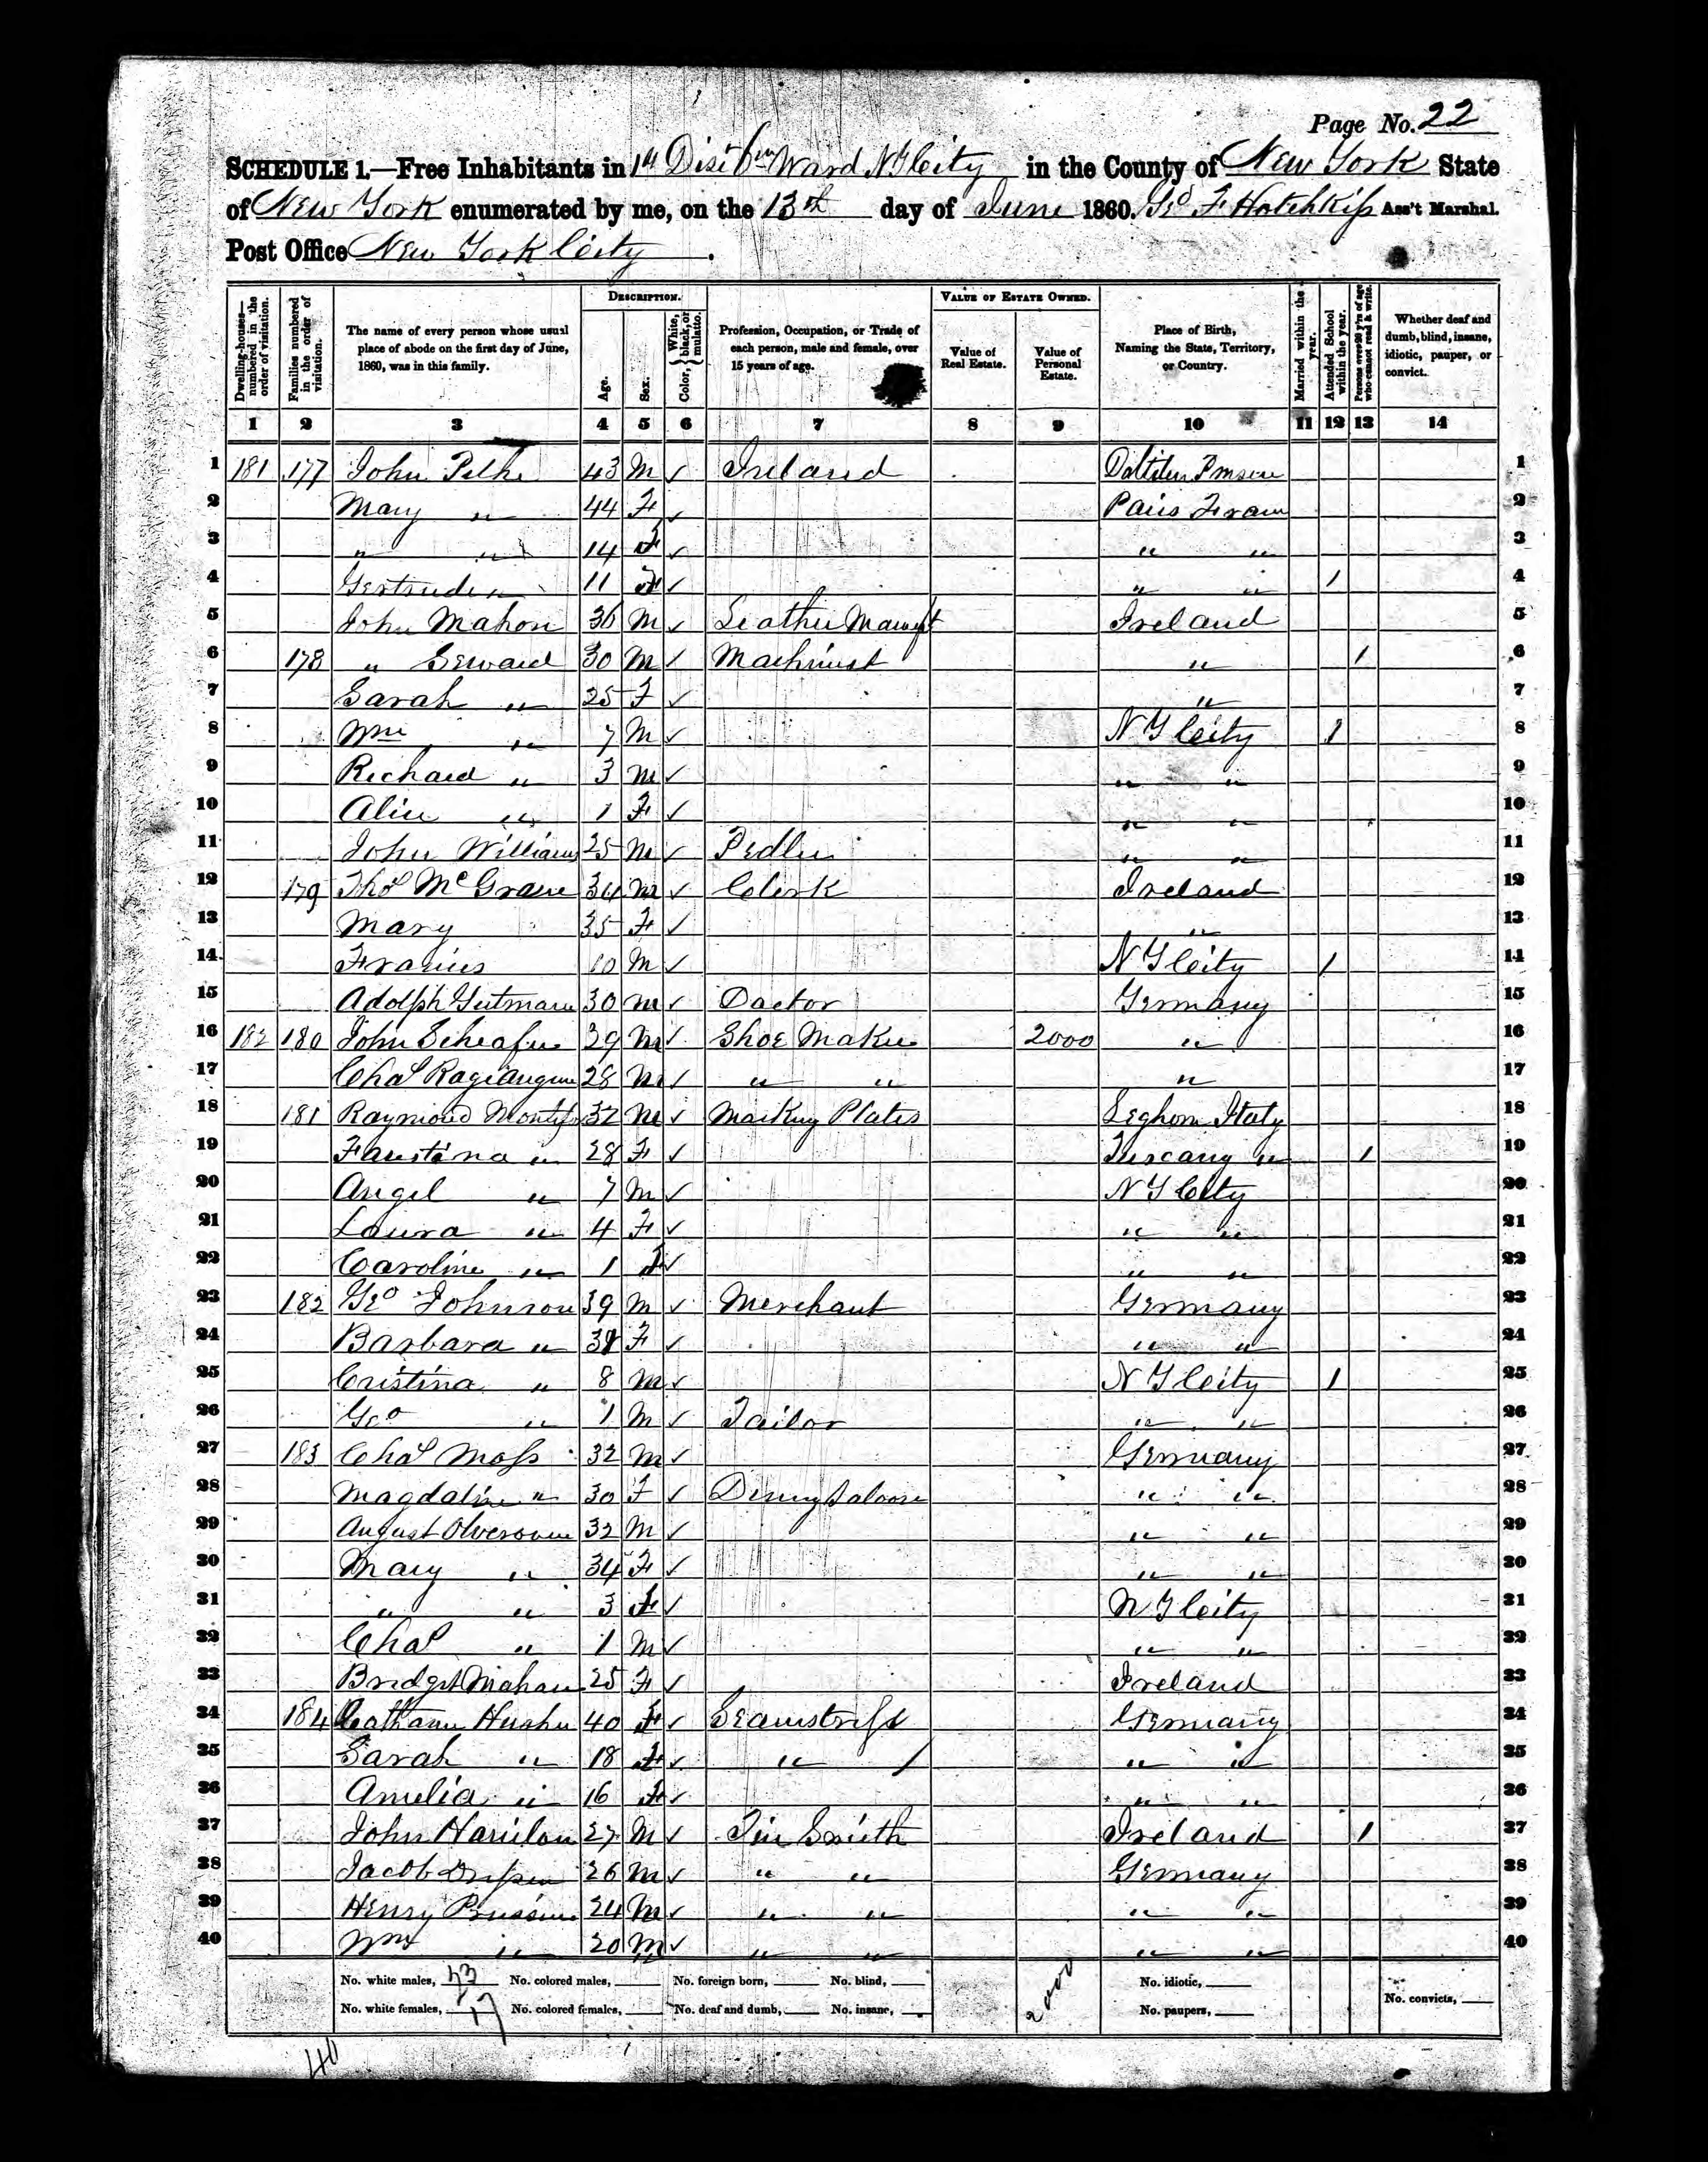 Page No. 22
SCHEDULE 1.—Free Inhabitants in 1st Dist 6th Ward N Y City in the County of New York State
of New York enumerated by me, on the 13th day of June 1860. Geo F Hotchkiss Ass't Marshal.
Post Office New York City.
DESCRIPTION. VALUE OF ESTATE OWNED.
Dwelling-houses—numbered in the order of visitation. Families numbered in the order of visitation. The name of every person whose usual place of abode on the first day of June, 1860, was in this family. Age. Sex. Color, { White, black, or mulatto. Profession, Occupation, or Trade of each person, male and female, over 15 years of age. Value of Real Estate. Value of Personal Estate. Place of Birth, Naming the State, Territory, or Country. Married within the year. Attended School within the year. Persons over 20 y'rs of age who cannot read & write. Whether deaf and dumb, blind, insane, idiotic, pauper, or convict.
1 2 3 4 5 6 7 8 9 10 11 12 13 14
1 181 177 John 43 M ✓ Ireland 1
2 Mary " 44 F ✓ Paris 2
3 " " 14 F ✓ " " 3
4 Gertrude " 11 F ✓ " " 1 4
5 John Mahon 36 M ✓ Leather Ireland 5
6 178 " Seward 30 M ✓ Machinist " 1 6
7 Sarah " 25 F ✓ " 7
8 Wm " 7 M ✓ N Y City 1 8
9 Richard " 3 M ✓ " " 9
10 Alice " 1 F ✓ " " 10
11 John Williams 25 M ✓ Pedler " " 11
12 179 Thos 34 M ✓ Clerk Ireland 12
13 Mary 35 F ✓ " 13
14 Francis 10 M ✓ N Y City 1 14
15 Adolph Gutman 30 M ✓ Doctor Germany 15
16 182 180 John 39 M ✓ Shoe Maker 2000 " 16
17 Chas 28 M ✓ " " " 17
18 181 Raymond 32 M ✓ Plates Leghorn Italy 18
19 Faustina " 28 F ✓ Tuscany " 1 19
20 Angel " 7 M ✓ N Y City 20
21 Laura " 4 F ✓ " " 21
22 Caroline " 1 F ✓ " " 22
23 182 Geo Johnson 39 M ✓ Merchant Germany 23
24 Barbara " F ✓ " " 24
25 Cristina " 8 M ✓ N Y City 1 25
26 Geo " 1 M ✓ Tailor " " 26
27 183 Chas Moss 32 M ✓ Germany 27
28 Magdaline " 30 F ✓ Saloon " " 28
29 August 32 M ✓ " " 29
30 Mary " 34 F ✓ " " 30
31 " " 3 F ✓ N Y City 31
32 Chas " 1 M ✓ " " 32
33 Bridget Mahan 25 F ✓ Ireland 33
34 184 40 F ✓ Seamstress Germany 34
35 Sarah " 18 F ✓ " " " 35
36 Amelia " 16 F ✓ " " 36
37 John 27 M ✓ Tin Smith Ireland 1 37
38 Jacob 26 M ✓ " " Germany 38
39 Henry 24 M ✓ " " " " 39
40 Wm " 20 M ✓ " " " " 40
No. white males, 23 No. colored males, No. foreign born, No. blind, No. idiotic,
No. white females, 17 No. colored females, No. deaf and dumb, No. insane, 2000 No. paupers, No. convicts,
40